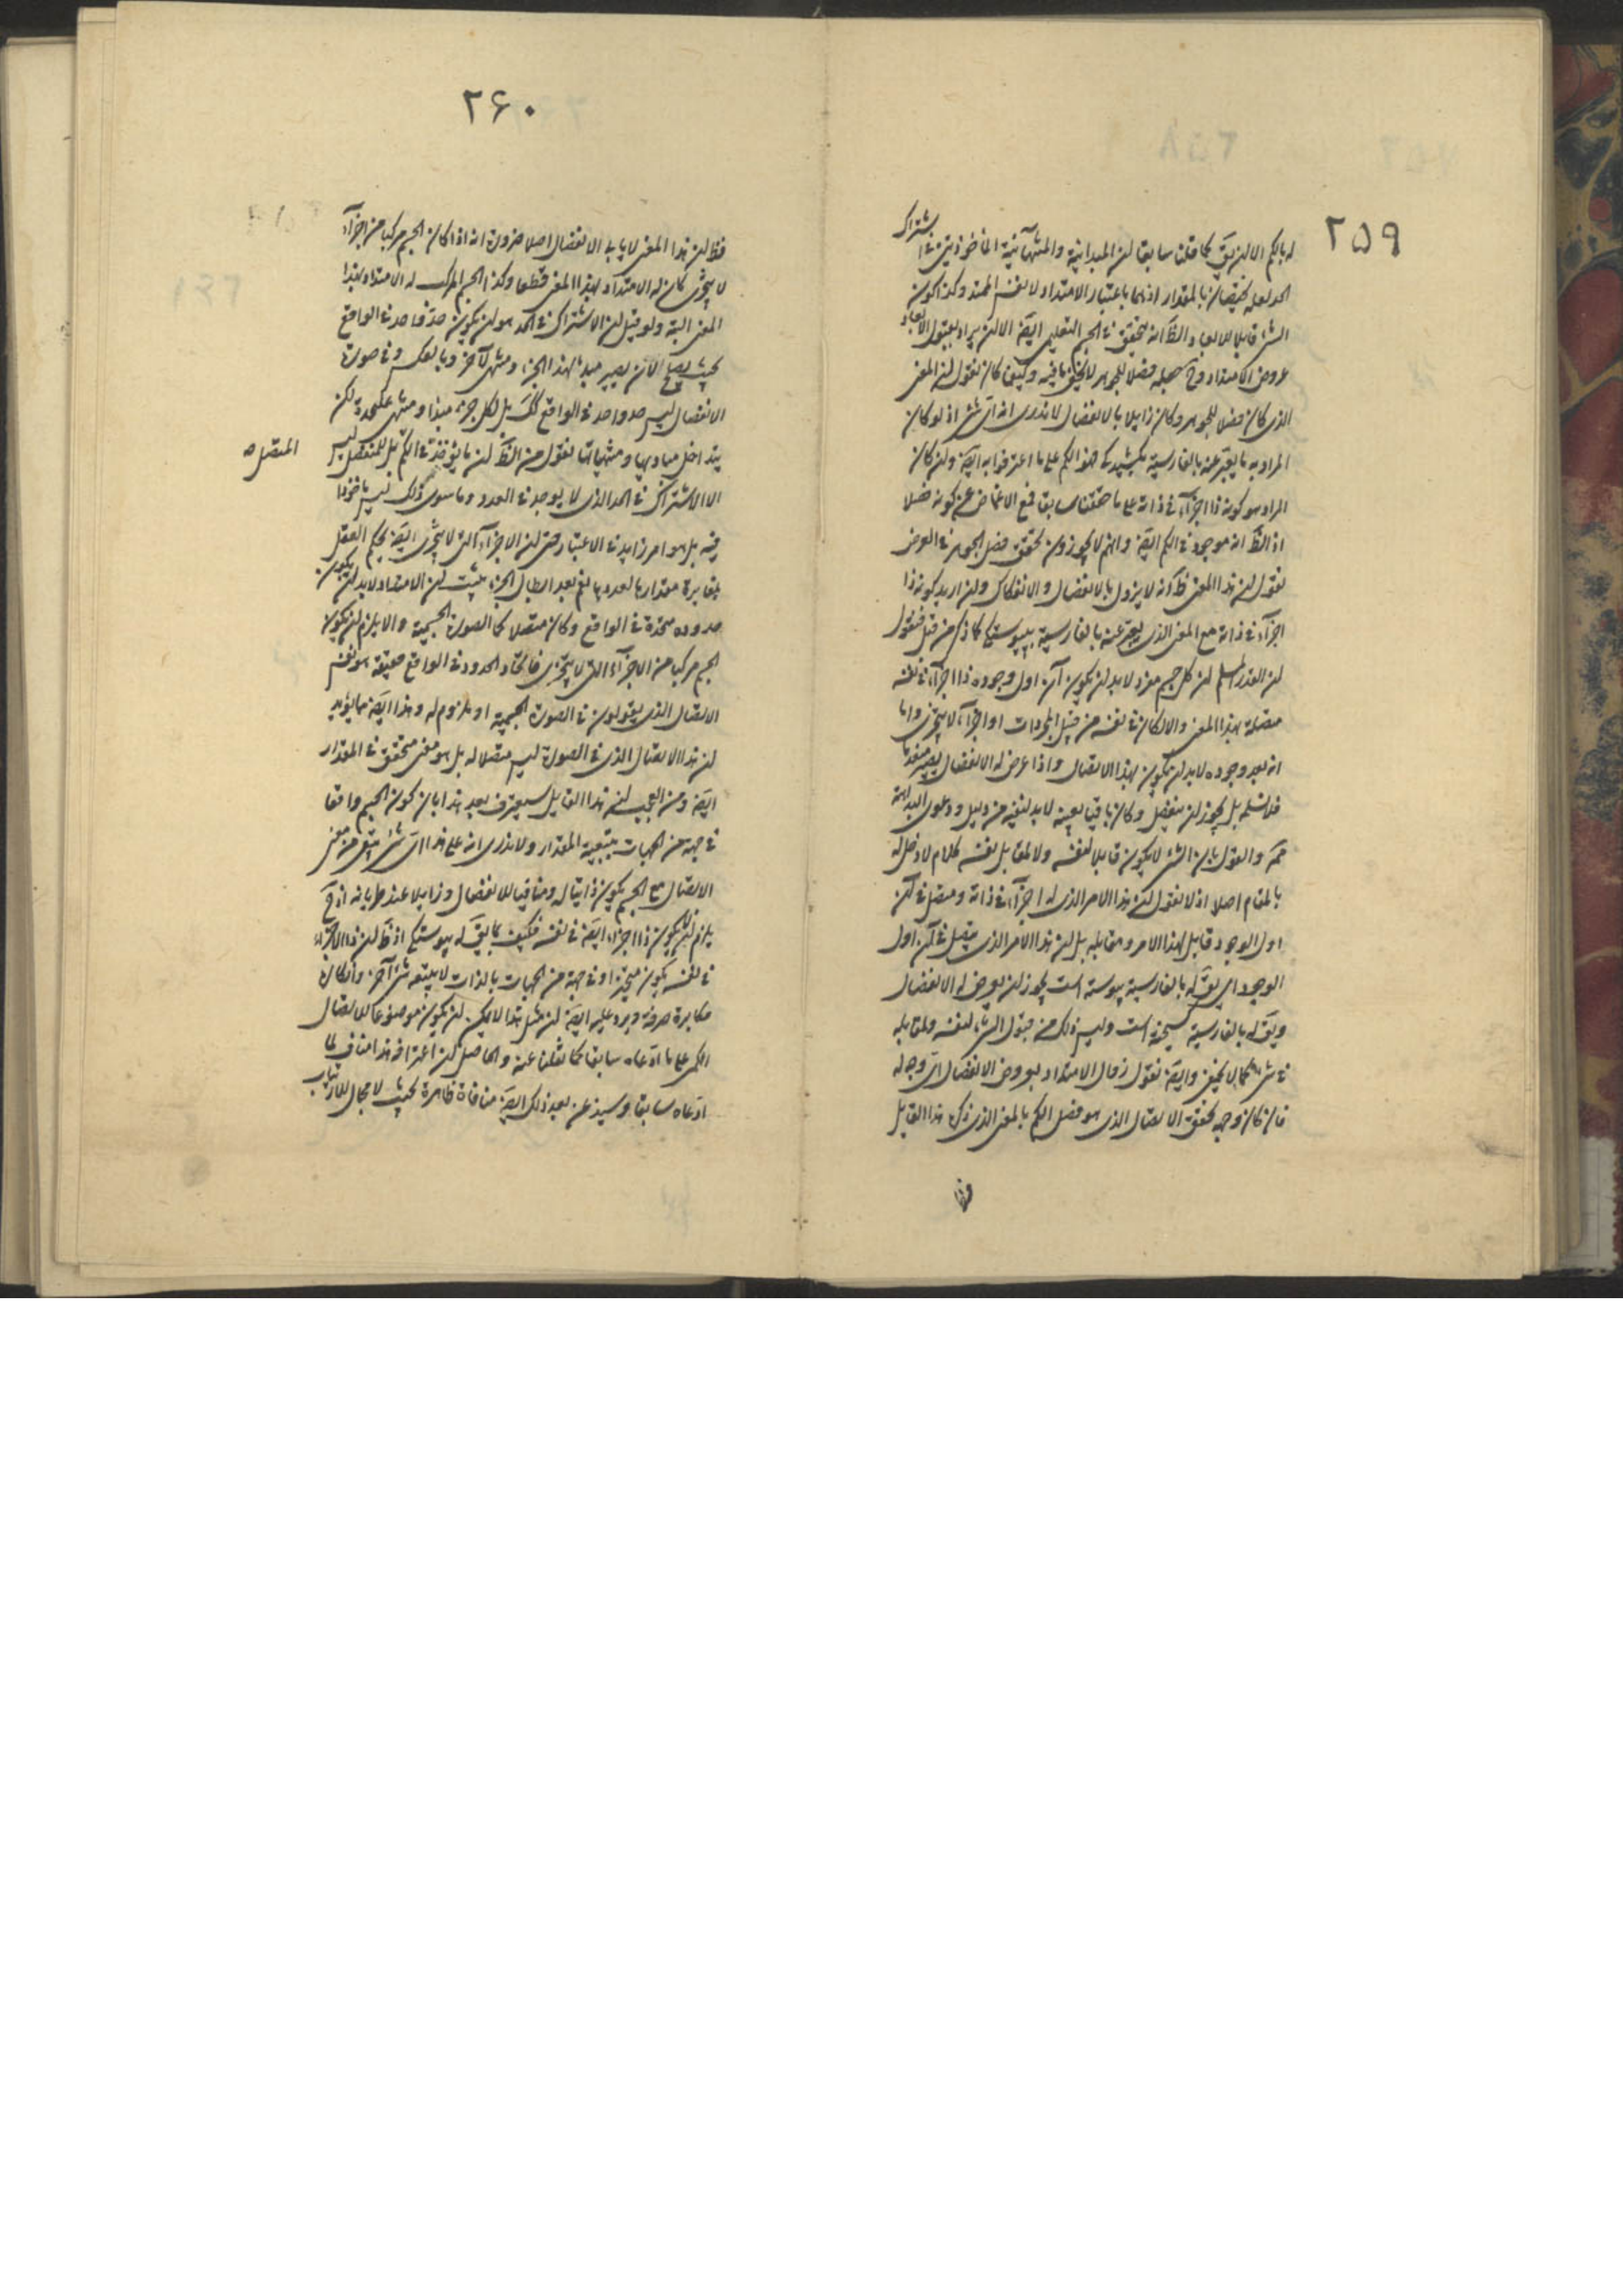 ٢٥٩
له بالكم الا ان يقَ كما قلنا سابقا ان المبدائية والمنتهائية الماخوذتين فى اشتراك
الحد لعله يختصان بالمقدار اذ هما باعتبار الامتداد لا نفس الممتد وكذا كون
الشئ قابلا للابعاد والظَ انه متحقق فى الجسم التعليمى ايضَ الا ان يراد بقبول الابعاد
عروض الامتداد وح جعله فصلا للجوهر لا يخفى ما فيه وكيف كان نقول ان المعنى
الذى كان فصلا للجوهر وكان زايلا بالانفصال لا ندرى انه اى شئ اذ لو كان
المراد به ما يعبر عنه بالفارسية بكشيدكى فهو الكم على ما اعترفوا به ايضَ وان كان
المراد هو كونه ذا اجزاء فى ذاته على ما حققنا سابقا فمع الاغماض عن كونه فصلا
اذ الظَ انه موجود فى الكم ايضَ وانهم لا يجوزون تحقق فصل الجوهر فى العرض
نقول ان هذا المعنى ظَ انه لا يزول بالانفصال والانفكاك وان اريد كونه ذا
اجزاء فى ذاته مع المعنى الذى يعبر عنه بالفارسية بپيوستكى كما ذكر من قبل فنقول
ان القدر المسلم ان كل جسم مفرد لابد ان يكون آن اول وجوده ذا اجزاء فى نفسه
متصلة بهذا المعنى والا لكان فى نفسه من قبيل المجردات او اجزاء لا يتجزى واما
انه بعد وجوده لابد ان يكون بهذا الاتصال واذا عرض له الانفصال يصير منعدما
فلا نسلمه بل يجوز ان ينفصل وكان باقيا بعينه لابد لنفيه من دليل ودعوى البداهة
ممَ والقول بان الشئ لا يكون قابلا لنفسه ولا لمقابل نفسه كلام لا دخل له
بالمقام اصلا اذ لا نقول ان هذا الامر الذى له اجزاء فى ذاته ومتصل فى آن
اول الوجود قابل لهذا الامر ومقابله بل ان هذا الامر الذى متصل فى آن اول
الوجود اى يقَ له بالفارسية پيوسته است يجوز ان يعرض له الانفصال
ويقَ له بالفارسية كسيخته است وليس ذلك من قبول الشئ لنفسه ولمقابله
فى شئ كما لا يخفى وايضَ نقول زوال الامتداد بعروض الانفصال اى وجه له
فان كان وجهه تحقق الاتصال الذى هو فصل الكم بالمعنى الذى ذكره هذا القايل
فظَ
٢۶٠
فظَ ان هذا المعنى لا يابى الانفصال اصلا ضرورة انه اذا كان الجسم مركبا من اجزاء
لا يتجزى كان له الامتداد بهذا المعنى قطعا وكذا الجسم المركب له الامتداد بهذا
المعنى البتة ولو قيل ان الاشتراك فى الحد هو ان يكون حدا واحدا فى الواقع
بحيث يصلح لان يصير مبدء لهذا الجزء ومنتهى لآخر وبالعكس وفى صورة
الانفصال ليس حد واحد فى الواقع كذلك بل لكل جزء مبدا ومنتهى عليحدة لكن
يتداخل مباديها ومنتهياتها نقول من الظَ ان ما يؤخذ فى الكم بل المنفصل ليس
المتصل ه
الا الاشتراك فى الحد الذى لا يوجد فى العدد وما سوى ذلك ليس ماخوذا
فيه بل هو امر زايد فى الاعتبار حتى ان الاجزاء التى لا يتجزى ايضَ يحكم العقل
بمغايرة مقدارها لعددها نعم بعد ابطال الجزء يثبت ان الامتداد لابد ان يكون
حدوده متحدة فى الواقع وكان متصلا كما الصورة الجسمية والا يلزم ان يكون
الجسم مركبا من الاجزاء التى لا يتجزى فاتحاد الحدود فى الواقع حقيقة هو نفس
الاتصال الذى يقولون فى الصورة الجسمية او ملزوم له وهذا ايضَ مما يؤيد
ان هذا الاتصال الذى فى الصورة ليس متصلا له بل هو معنى متحقق فى المقدار
ايضَ ومن العجب ان هذا القايل سيعترف بعد هذا بان كون الجسم واقعا
فى جهة من الجهات بتبعية المقدار ولا ندرى انه على هذا اى شئ بقى من معنى
الاتصال مع الجسم يكون ذاتيا له ومنافيا للانفصال وزايلا عند طريانه اذ ح
يلزم ان لا يكون ذا اجزاء ايضَ فى نفسه فكيف بما يقَ له پيوستكى اذ ظَ ان ذا الاجزاء
فى نفسه يكون متحيزا وفى جهة من الجهات بالذات لا بتبعية شئ آخر وانكاره
مكابرة صرفة ويرد عليه ايضَ ان مثل هذا لا يمكن ان يكون موضوعا للاتصال
الكمى على ما ادعاه سابقا كما نقلنا عنه والحاصل ان اعترافه هذا مناف لما
ادعاه سابقا وسيذعن بعد ذلك ايضَ منافاة ظاهرة بحيث لا مجال للارتياب